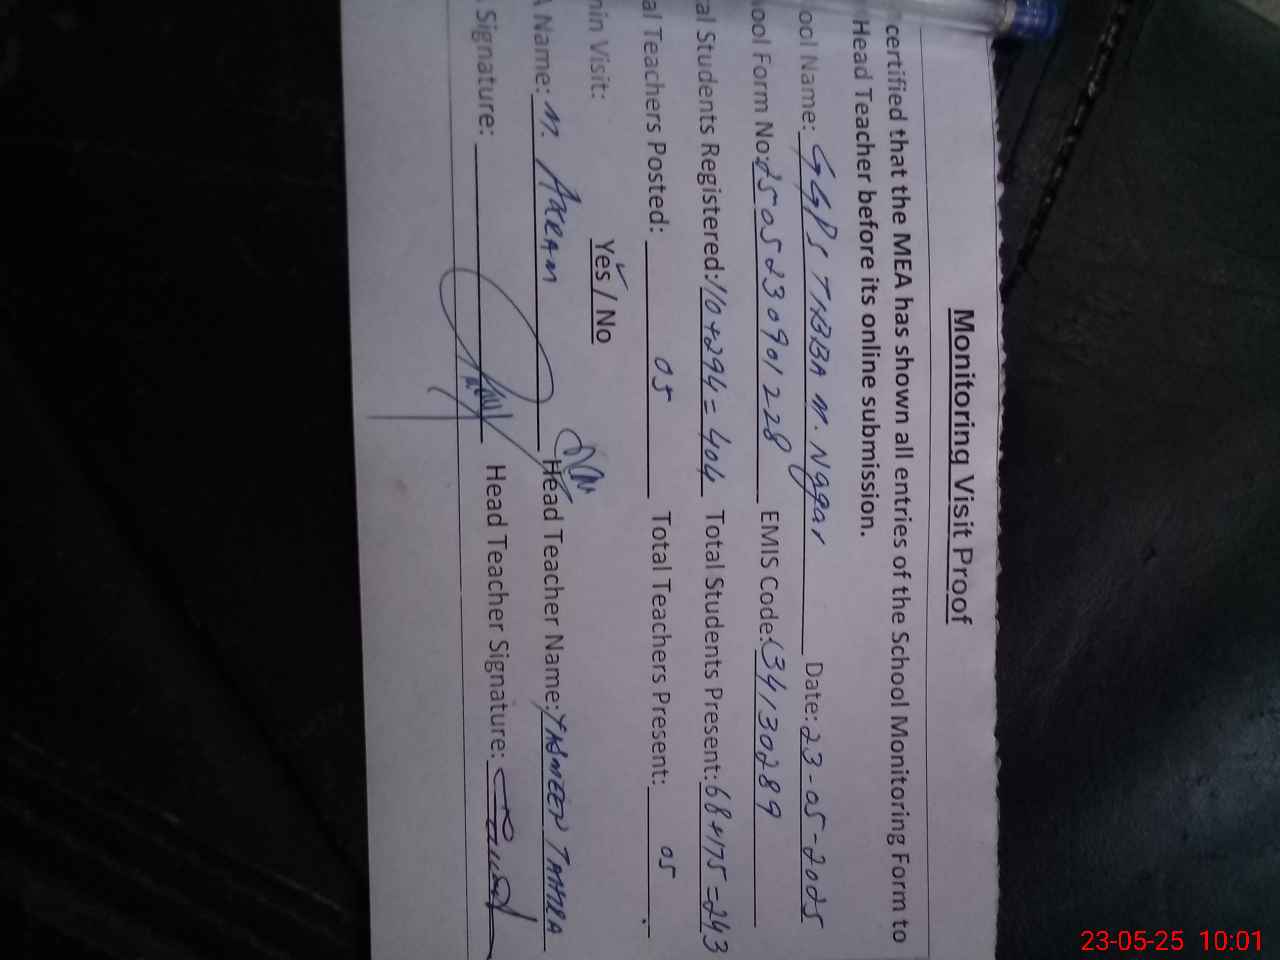 Monitoring Visit Proof
certified that the MEA has shown all entries of the School Monitoring Form to
Head Teacher before its online submission.
ool Name: GGPS THBBA M. Nggar Date: 23-05-2025
ool Form No: 2505230901228 EMIS Code: 34130289
al Students Registered: 110+294=404 Total Students Present: 68+175=243
al Teachers Posted: 05 Total Teachers Present: 05
min Visit: Yes / No
A Name: M. AKRAM Head Teacher Name: YASMEEN TAHIRA
Signature: Head Teacher Signature:
23-05-25 10:01